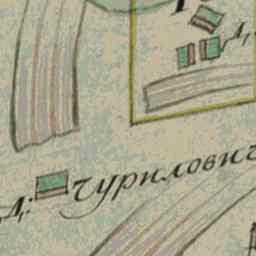 Д.
Д: Чурилович